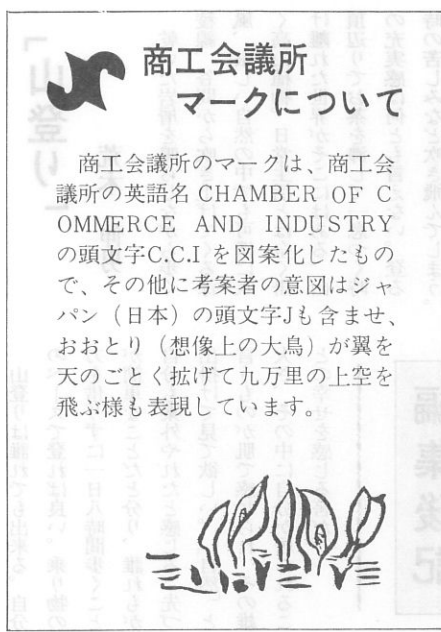 商工会議所
マークについて
商工会議所のマークは、商工会
議所の英語名 CHAMBER OF C
OMMERCE AND INDUSTRY
の頭文字C.C.I を図案化したもの
で、その他に考案者の意図はジャ
パン（日本）の頭文字Jも含ませ、
おおとり（想像上の大鳥）が翼を
天のごとく拡げて九万里の上空を
飛ぶ様も表現しています。